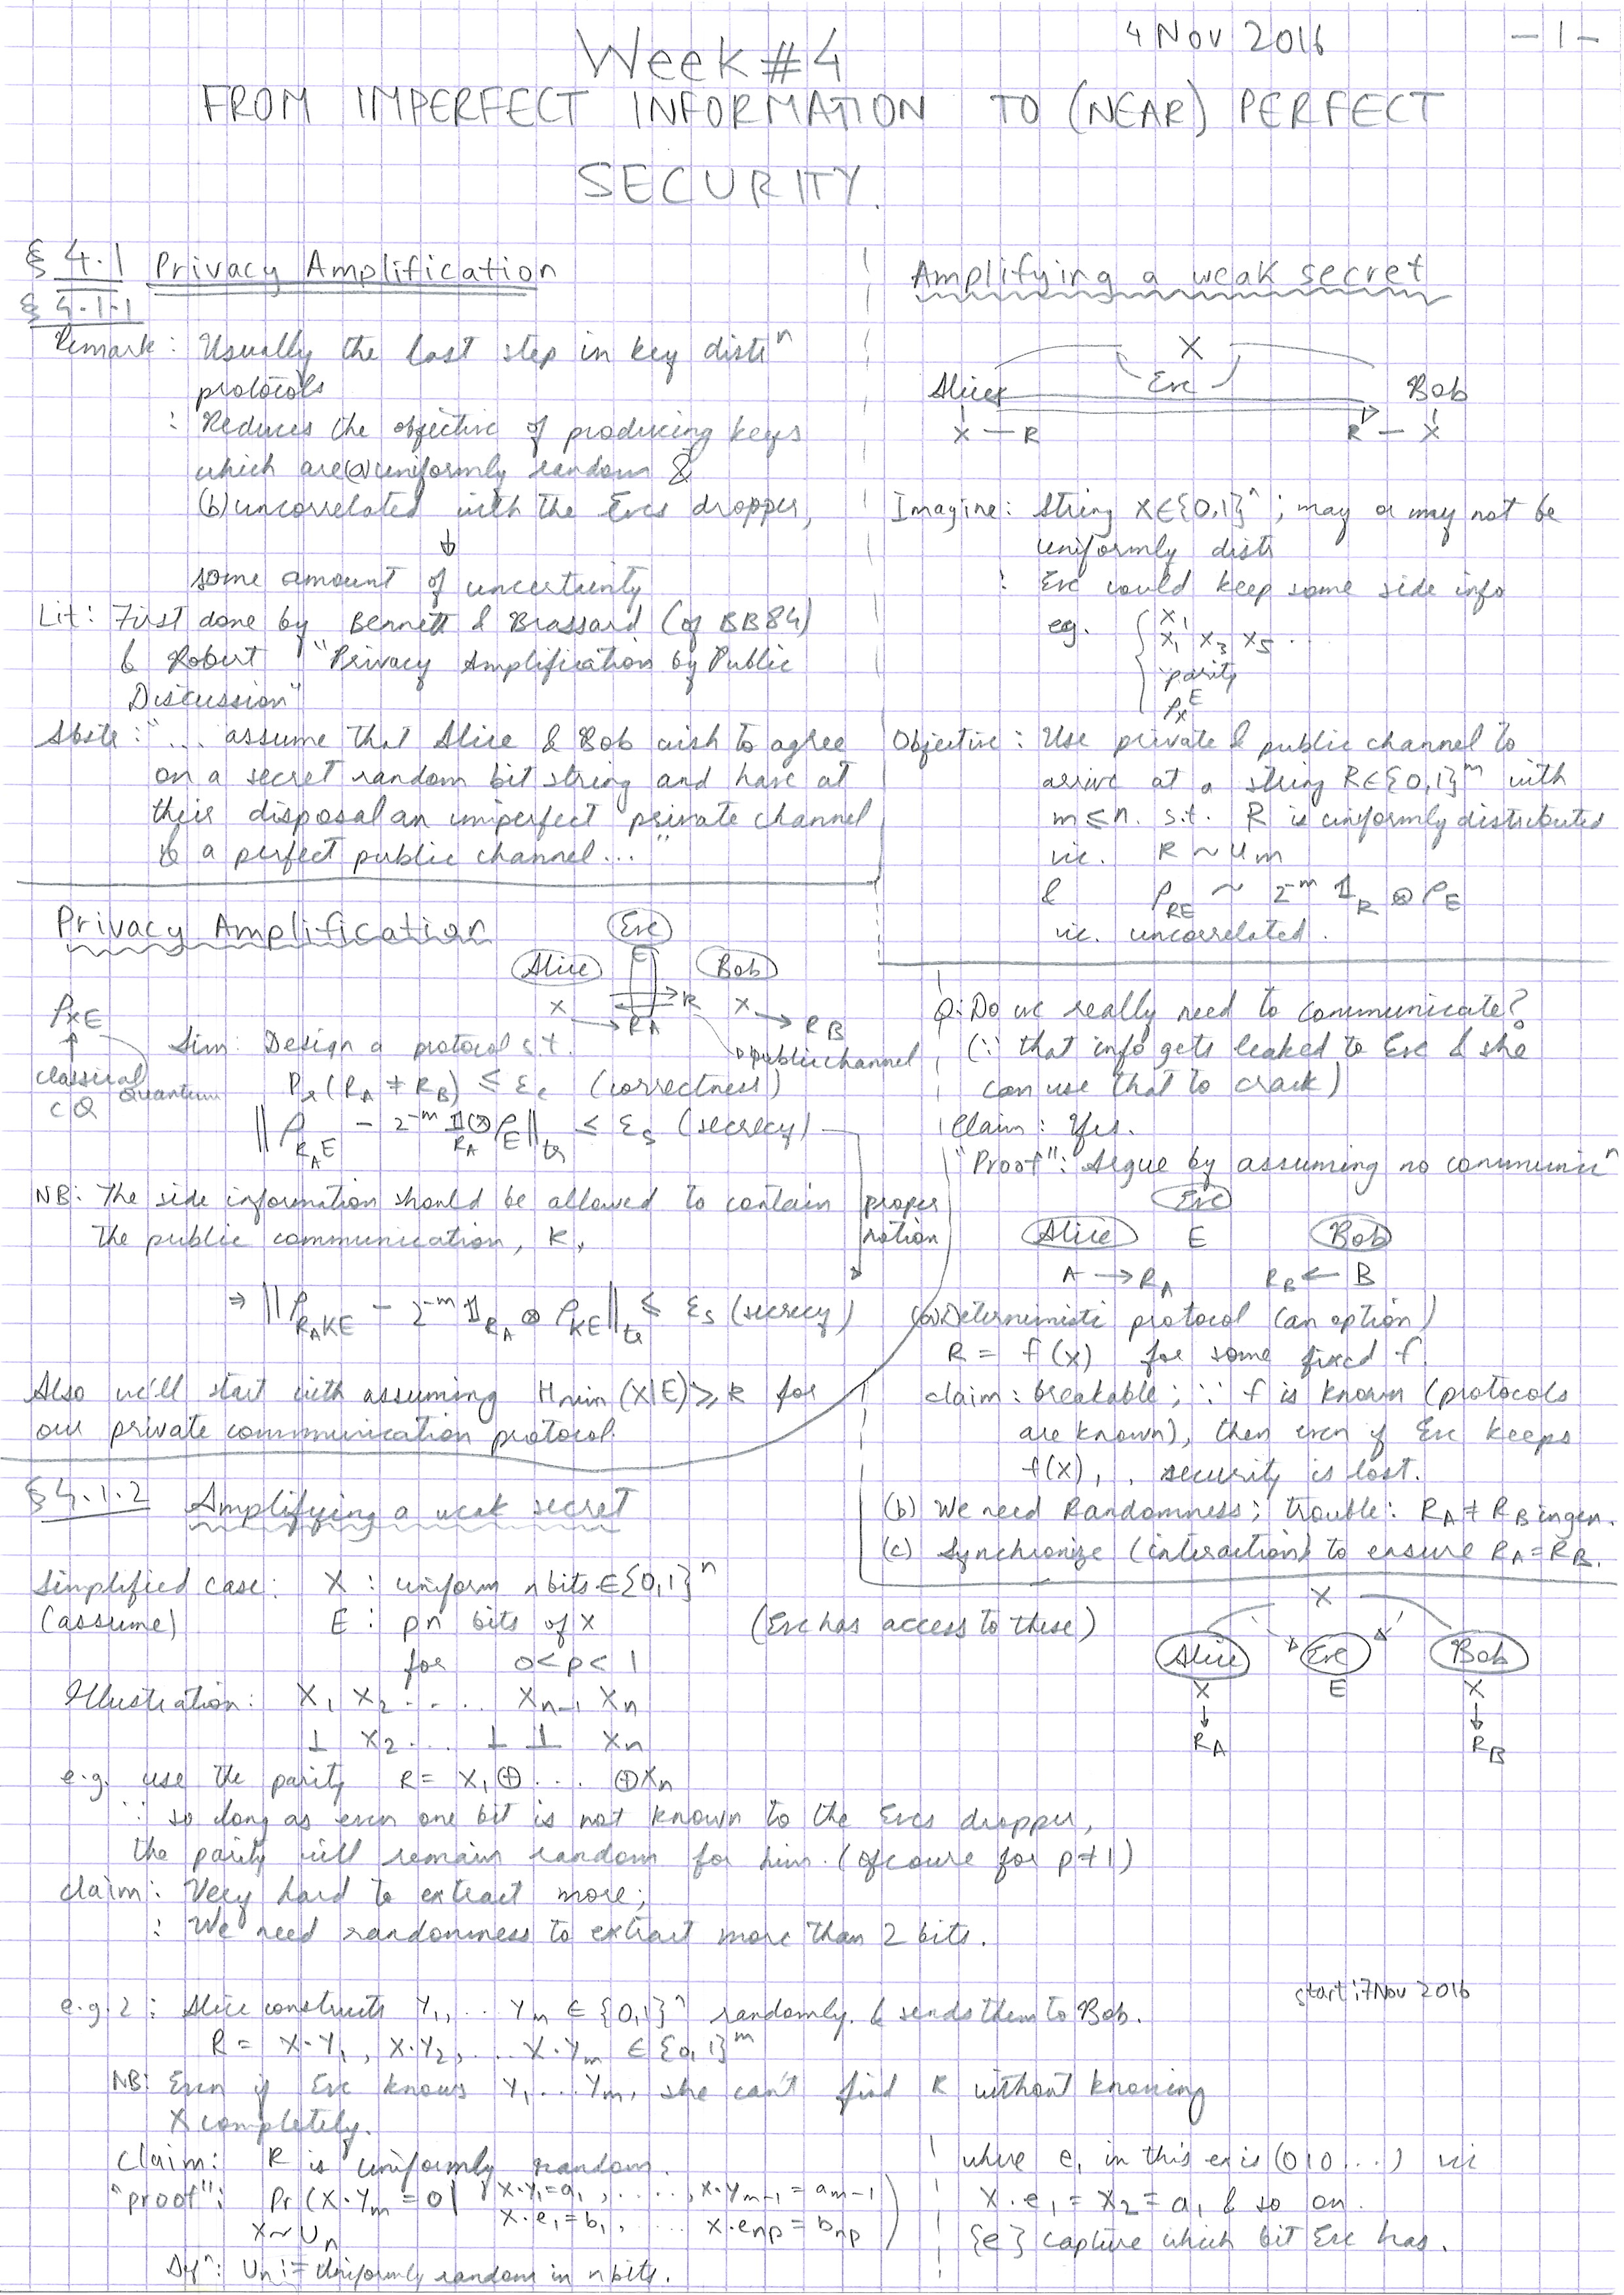 4 Nov 2016 -1-
Week #4
FROM IMPERFECT INFORMATION TO (NEAR) PERFECT
SECURITY.
§ 4.1 Privacy Amplification
§ 4.1.1
Remark: Usually the last step in key distⁿ
protocols
: Reduces the objective of producing keys
which are (a) uniformly random &
(b) uncorrelated with the Eves dropper,
↓
some amount of uncertainity
Lit: First done by Bennett & Brassard (of BB84)
& Robert "Privacy Amplification by Public
Discussion"
"... assume that Alice & Bob wish to agree
on a secret random bit string and have at
their disposal an imperfect private channel
& a perfect public channel..."
Amplifying a weak secret
X
Alice Eve Bob
X — R R — X
Imagine: String X∈{0,1}ⁿ; may or may not be
uniformly distr
: Eve could keep some side info
eg. { X₁
X₁ X₃ X₅ ..
parity
ρ_X^E
Objective: Use private & public channel to
arrive at a string R∈{0,1}ᵐ with
m≤n. s.t. R is uniformly distributed
vic. R ~ U_m
& ρ_RE ~ 2^-m 𝟙_R ⊗ ρ_E
vic. uncorrelated.
Privacy Amplification
Eve
Alice E Bob
X → R_A R X → R_B
public channel
ρ_XE
classical quantum
CQ
Aim: Design a protocol s.t.
Pr(R_A ≠ R_B) ≤ ε_c (correctness)
‖ρ_{R_A E} - 2^-m 𝟙_{R_A} ⊗ ρ_E‖_tr ≤ ε_s (secrecy)
NB: The side information should be allowed to contain
the public communication, K,
proper
notion
⇒ ‖ρ_{R_A KE} - 2^-m 𝟙_{R_A} ⊗ ρ_KE‖_tr ≤ ε_s (secrecy)
Also we'll start with assuming Hmin(X|E) ≥ k for
our private communication protocol.
Q: Do we really need to communicate?
(∵ that info gets leaked to Eve & she
can use that to crack)
Claim: Yes.
"Proof": Argue by assuming no communicⁿ
Eve
Alice E Bob
A → R_A R_B ← B
(a) Deterministic protocol (an option)
R = f(x) for some fixed f.
claim: breakable; ∵ f is known (protocols
are known), then even if Eve keeps
f(x), , security is lost.
(b) We need Randomness; trouble: R_A ≠ R_B in gen.
(c) Synchronize (interaction) to ensure R_A = R_B.
§ 4.1.2 Amplifying a weak secret
Simplified case: X : uniform n bits ∈{0,1}ⁿ
(assume) E : pn bits of X (Eve has access to these)
for 0<p<1
Illustration: X₁ X₂ .... X_{n-1} X_n
⊥ X₂ ... ⊥ ⊥ X_n
X
Alice Eve Bob
X E X
↓ ↓
R_A R_B
e.g. use the parity R = X₁ ⊕ .... ⊕ X_n
∵ so long as even one bit is not known to the Eves dropper,
the parity will remain random for him. (ofcourse for p≠1)
claim: Very hard to extract more;
: We need randomness to extract more than 2 bits.
start: 7 Nov 2016
e.g. 2: Alice constructs Y₁, ... Y_m ∈ {0,1}ⁿ randomly. & sends them to Bob.
R = X·Y₁, X·Y₂, ... X·Y_m ∈ {0,1}ᵐ
NB: Even if Eve knows Y₁ ... Y_m, she can't find R without knowing
X completely.
Claim: R is uniformly random.
"proof": Pr (X·Y_m = 0 | X·Y₁=a₁, ....., X·Y_{m-1} = a_{m-1}
X~U_n X·e₁=b₁, ..... X·e_np = b_np )
Defⁿ: U_n := Uniformly random in n bits.
where e₁ in this ex is (010...) vic
X·e₁ = X₂ = a₁ & so on.
{e} capture which bit Eve has.